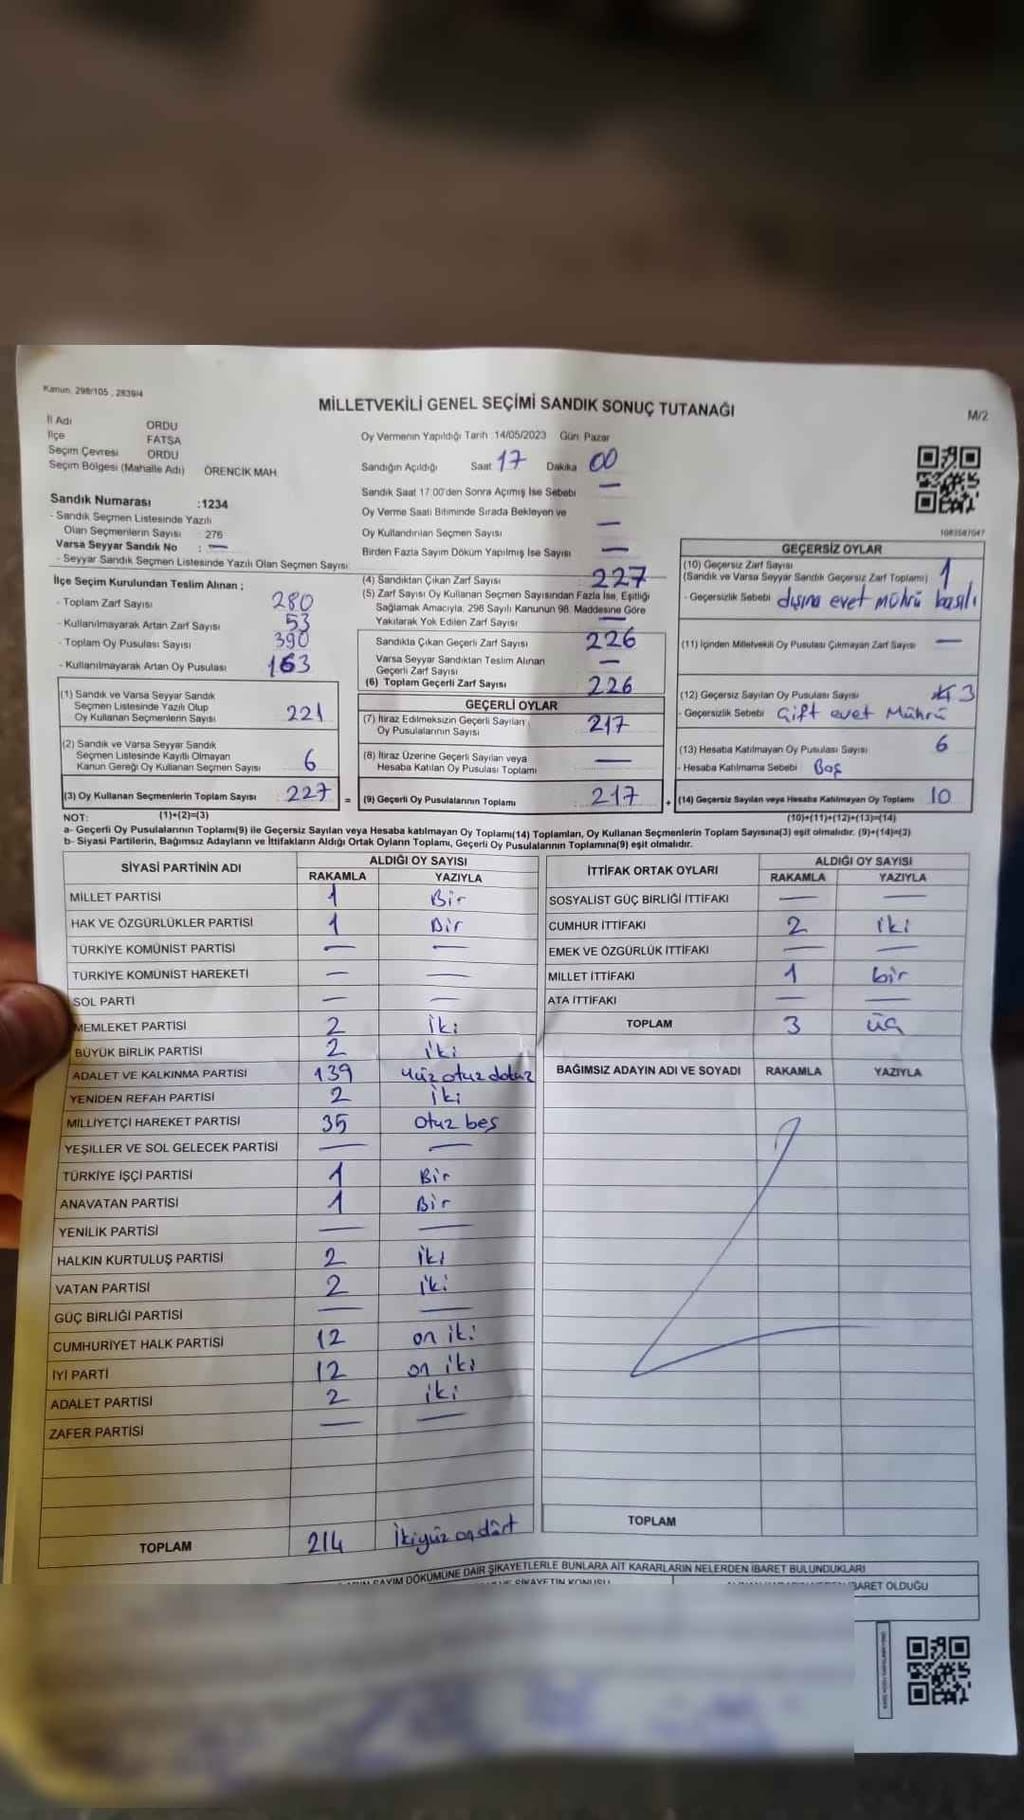 Kanun: 298/105 , 2839/4
MİLLETVEKİLİ GENEL SEÇİMİ SANDIK SONUÇ TUTANAĞI
M/2
İl Adı ORDU
İlçe FATSA
Seçim Çevresi ORDU
Seçim Bölgesi (Mahalle Adı) ÖRENCİK MAH.
Sandık Numarası :1234
- Sandık Seçmen Listesinde Yazılı
Olan Seçmenlerin Sayısı : 276
Varsa Seyyar Sandık No : —
- Seyyar Sandık Seçmen Listesinde Yazılı Olan Seçmen Sayısı:
Oy Vermenin Yapıldığı Tarih :14/05/2023 Gün: Pazar
Sandığın Açıldığı Saat 17 Dakika 00
Sandık Saat 17:00'den Sonra Açılmış İse Sebebi —
Oy Verme Saati Bitiminde Sırada Bekleyen ve
Oy Kullandırılan Seçmen Sayısı —
Birden Fazla Sayım Döküm Yapılmış İse Sayısı —
1083587047
İlçe Seçim Kurulundan Teslim Alınan ;
- Toplam Zarf Sayısı 280
- Kullanılmayarak Artan Zarf Sayısı 53
- Toplam Oy Pusulası Sayısı 390
- Kullanılmayarak Artan Oy Pusulası 163
(1) Sandık ve Varsa Seyyar Sandık
Seçmen Listesinde Yazılı Olup
Oy Kullanan Seçmenlerin Sayısı : 221
(2) Sandık ve Varsa Seyyar Sandık
Seçmen Listesinde Kayıtlı Olmayan
Kanun Gereği Oy Kullanan Seçmen Sayısı : 6
(3) Oy Kullanan Seçmenlerin Toplam Sayısı : 227 =
(1)+(2)=(3)
(4) Sandıktan Çıkan Zarf Sayısı : 227
(5) Zarf Sayısı Oy Kullanan Seçmen Sayısından Fazla İse, Eşitliği
Sağlamak Amacıyla, 298 Sayılı Kanunun 98. Maddesine Göre
Yakılarak Yok Edilen Zarf Sayısı —
Sandıkta Çıkan Geçerli Zarf Sayısı 226
Varsa Seyyar Sandıktan Teslim Alınan
Geçerli Zarf Sayısı —
(6) Toplam Geçerli Zarf Sayısı : 226
GEÇERLİ OYLAR
(7) İtiraz Edilmeksizin Geçerli Sayılan
Oy Pusulalarının Sayısı : 217
(8) İtiraz Üzerine Geçerli Sayılan veya
Hesaba Katılan Oy Pusulası Toplamı : —
(9) Geçerli Oy Pusulalarının Toplamı : 217 +
GEÇERSİZ OYLAR
(10) Geçersiz Zarf Sayısı
(Sandık ve Varsa Seyyar Sandık Geçersiz Zarf Toplamı) : 1
- Geçersizlik Sebebi : dışına evet mührü basılı
(11) İçinden Milletvekili Oy Pusulası Çıkmayan Zarf Sayısı —
(12) Geçersiz Sayılan Oy Pusulası Sayısı 3
- Geçersizlik Sebebi : Çift evet Mührü
(13) Hesaba Katılmayan Oy Pusulası Sayısı : 6
- Hesaba Katılmama Sebebi : Boş
(14) Geçersiz Sayılan veya Hesaba Katılmayan Oy Toplamı : 10
(10)+(11)+(12)+(13)=(14)
NOT:
a- Geçerli Oy Pusulalarının Toplamı(9) ile Geçersiz Sayılan veya Hesaba katılmayan Oy Toplamı(14) Toplamları, Oy Kullanan Seçmenlerin Toplam Sayısına(3) eşit olmalıdır. (9)+(14)=(3)
b- Siyasi Partilerin, Bağımsız Adayların ve İttifakların Aldığı Ortak Oyların Toplamı, Geçerli Oy Pusulalarının Toplamına(9) eşit olmalıdır.
SİYASİ PARTİNİN ADI
ALDIĞI OY SAYISI
RAKAMLA YAZIYLA
MİLLET PARTİSİ 1 Bir
HAK VE ÖZGÜRLÜKLER PARTİSİ 1 Bir
TÜRKİYE KOMÜNİST PARTİSİ — —
TÜRKİYE KOMÜNİST HAREKETİ — —
SOL PARTİ — —
MEMLEKET PARTİSİ 2 iki
BÜYÜK BİRLİK PARTİSİ 2 iki
ADALET VE KALKINMA PARTİSİ 139 yüz otuz dokuz
YENİDEN REFAH PARTİSİ 2 iki
MİLLİYETÇİ HAREKET PARTİSİ 35 otuz beş
YEŞİLLER VE SOL GELECEK PARTİSİ — —
TÜRKİYE İŞÇİ PARTİSİ 1 Bir
ANAVATAN PARTİSİ 1 Bir
YENİLİK PARTİSİ — —
HALKIN KURTULUŞ PARTİSİ 2 iki
VATAN PARTİSİ 2 iki
GÜÇ BİRLİĞİ PARTİSİ — —
CUMHURİYET HALK PARTİSİ 12 on iki
İYİ PARTİ 12 on iki
ADALET PARTİSİ 2 iki
ZAFER PARTİSİ — —
TOPLAM 214 ikiyüz on dört
İTTİFAK ORTAK OYLARI
ALDIĞI OY SAYISI
RAKAMLA YAZIYLA
SOSYALİST GÜÇ BİRLİĞİ İTTİFAKI — —
CUMHUR İTTİFAKI 2 iki
EMEK VE ÖZGÜRLÜK İTTİFAKI — —
MİLLET İTTİFAKI 1 bir
ATA İTTİFAKI — —
TOPLAM 3 üç
BAĞIMSIZ ADAYIN ADI VE SOYADI RAKAMLA YAZIYLA
TOPLAM
SAYIM DÖKÜMÜNE DAİR ŞİKAYETLERLE BUNLARA AİT KARARLARIN NELERDEN İBARET BULUNDUKLARI
İBARET OLDUĞU